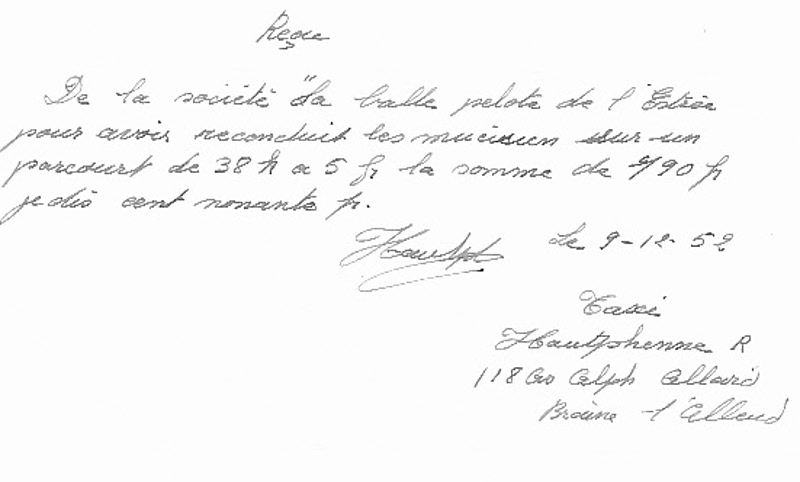 Reçu
De la société "La balle pelote de l'Estrée
pour avoir reconduit les mucicien sur un
parcourt de 38 k a 5 fr la somme de 190 fr
je dis cent nonante fr.
Hautph Le 9-12-52
Taxi
Hautphenne R
118 Av Alph Allard
Braine-l'Alleud